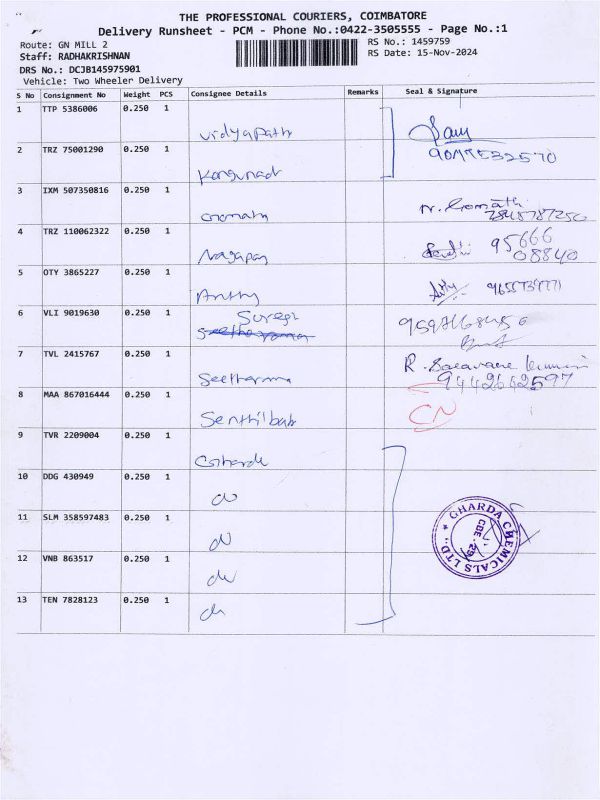 THE PROFESSIONAL COURIERS, COIMBATORE
Delivery Runsheet - PCM - Phone No.:0422-3505555 - Page No.:1
Route: GN MILL 2 RS No.: 1459759
Staff: RADHAKRISHNAN RS Date: 15-Nov-2024
DRS No.: DCJB145975901
Vehicle: Two Wheeler Delivery
S No Consignment No Weight PCS Consignee Details Remarks Seal & Signature
1 TTP 5386006 0.250 1
Vidyapath
2 TRZ 75001290 0.250 1
Kongunad
3 IXM 507350816 0.250 1
Gomath
4 TRZ 110062322 0.250 1
95666
Nagapan 08840
5 OTY 3865227 0.250 1
6 VLI 9019630 0.250 1
7 TVL 2415767 0.250 1
Seetharma 9442642597
8 MAA 867016444 0.250 1
CN
Senthilbab
9 TVR 2209004 0.250 1
10 DDG 430949 0.250 1
11 SLM 358597483 0.250 1
GHARDA CHEMICALS LTD
CBE-29
12 VNB 863517 0.250 1
13 TEN 7828123 0.250 1